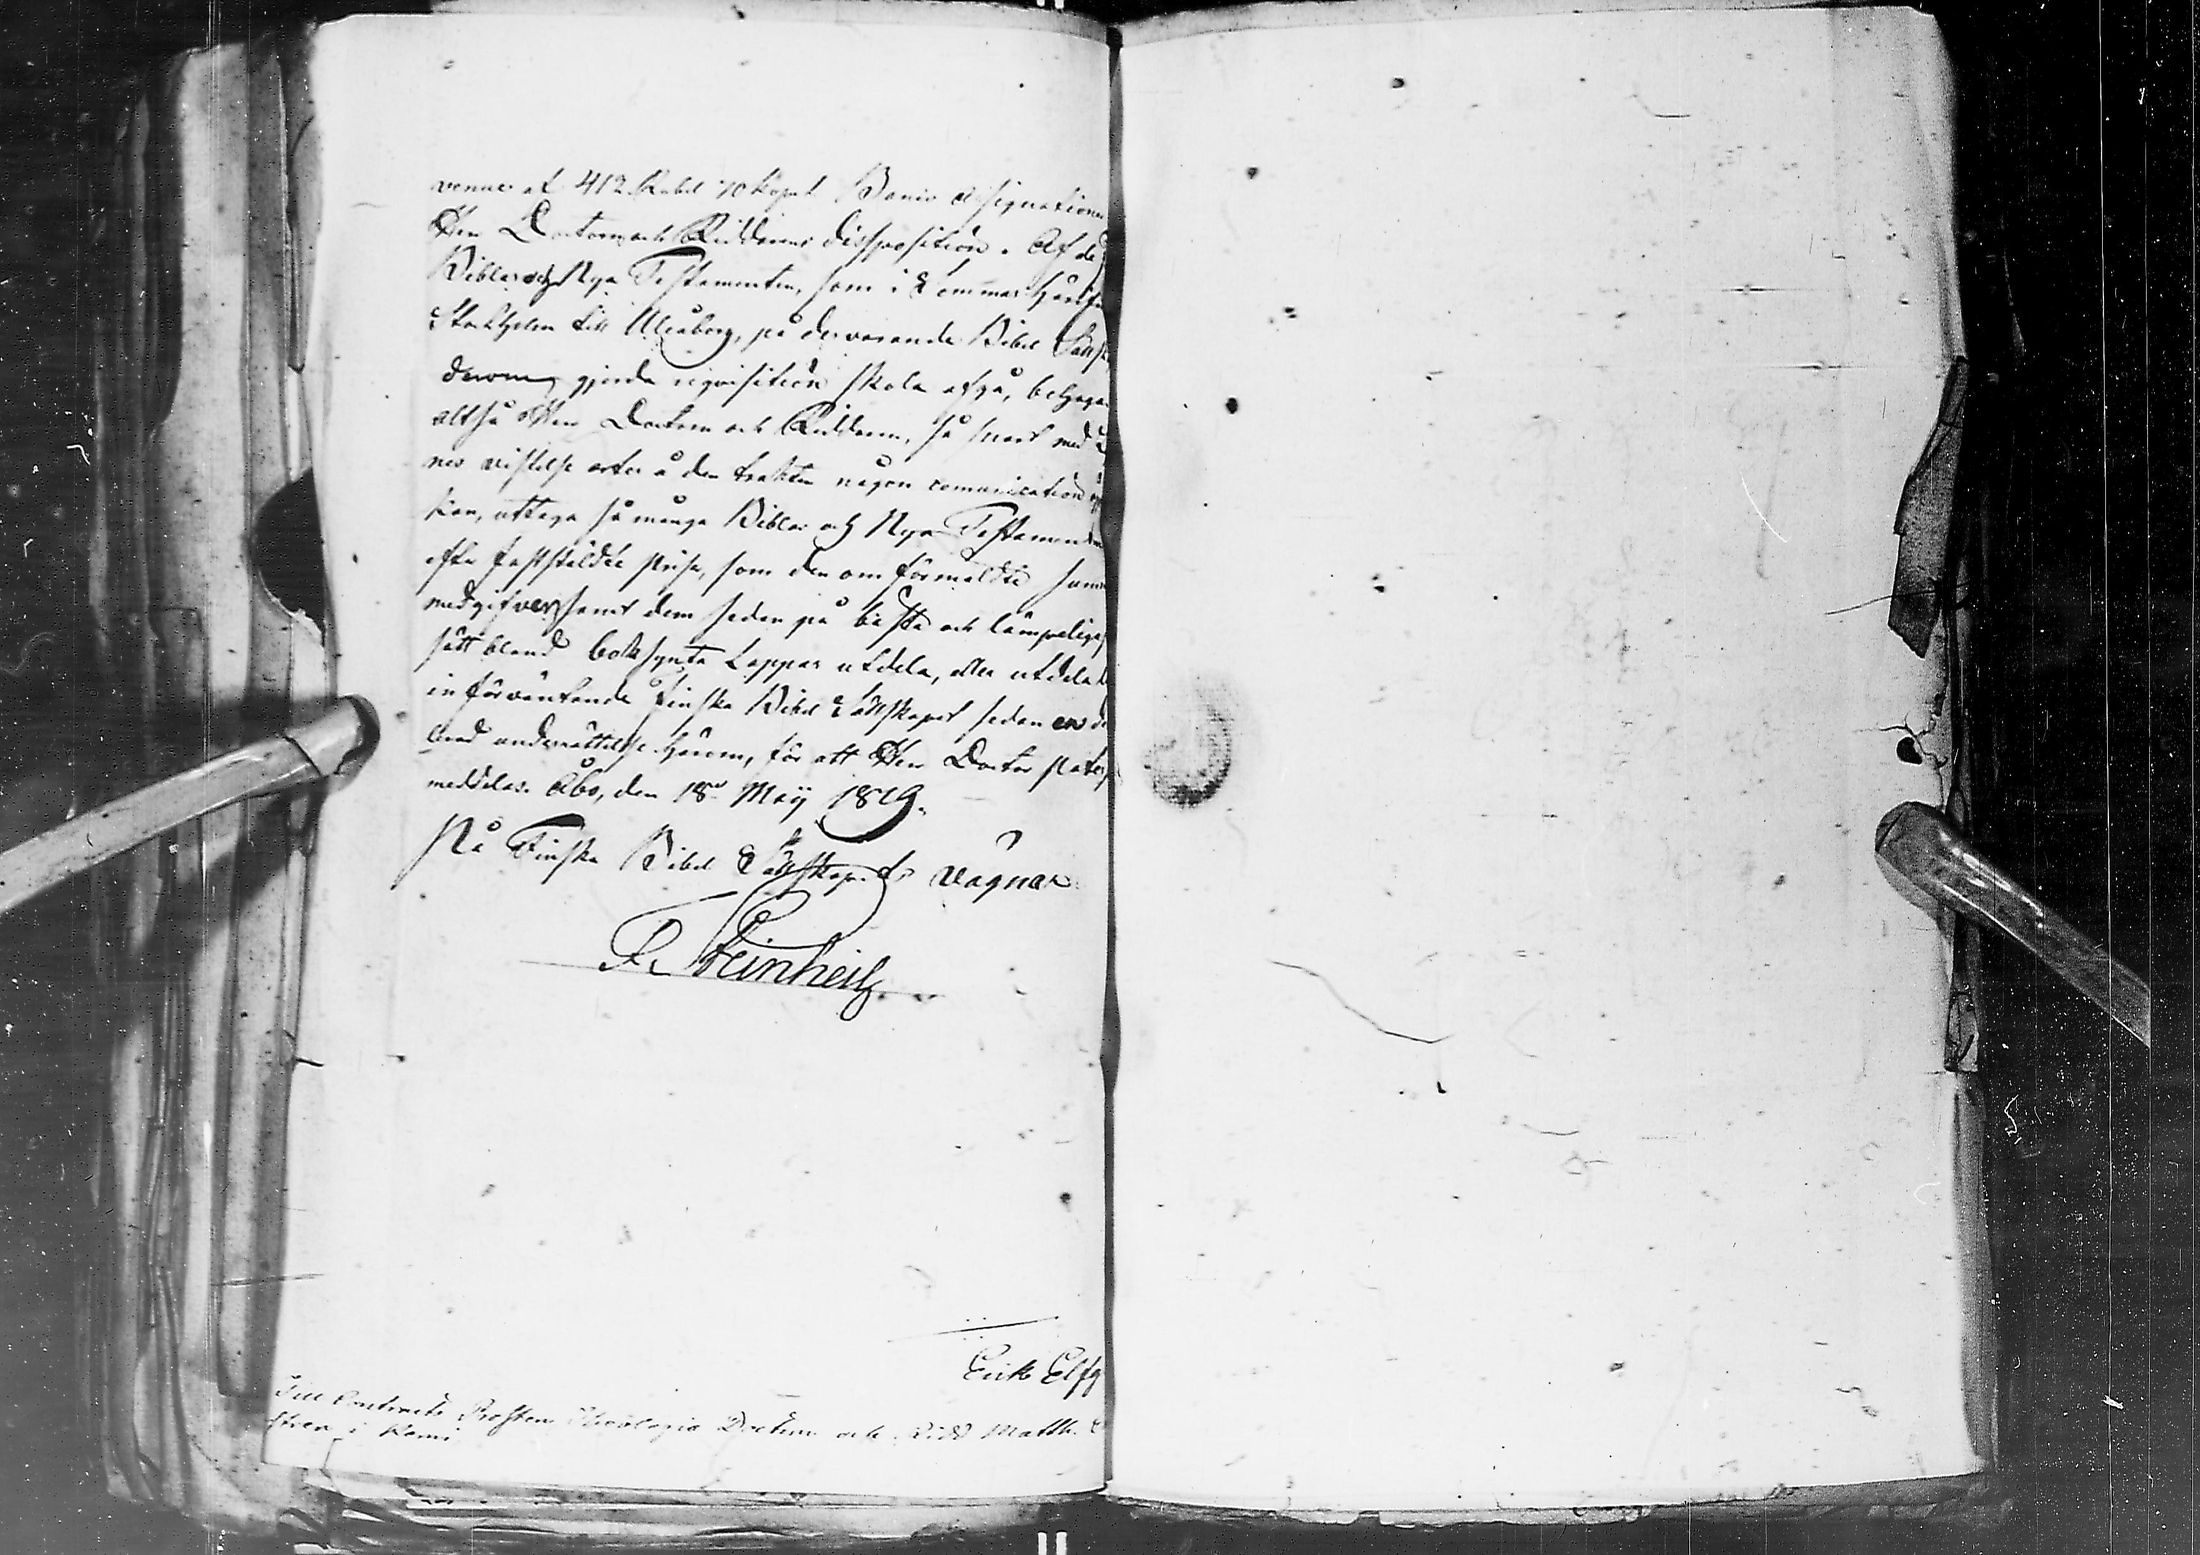 venne af 412 Rubel 70 Kopek Banco Assignationer
Herr Doctorn och Ridderns disposition. Af de
Biblar och Nya Testamenten, som i Sommar härifrån
Stockholm till Uleåborg, på dervarande Bibel Sälsk
derom gjorda requisition skola afgå, behaga
altså Herr Doctorn och Riddern, så snart med
nes vistelse orter å den trakten någon comunication
kan, uttaga så många Biblar och Nya Testamenten
efter faststäldte prise, som den om förmäldte summa
medgifver, samt dem sedan på bästa och lämpeligaste
sätt bland boksynta Lappar utdela, eller utdela
införväntande Finska Bibel Sällskapet sedan en
underrättelse härom, för att Herr Doctor
meddelas. Åbo, den 18de Maij 1819.
På Finska Bibel Sällskapets vägnar
F. Steinheil
Erik Elfg
Till Contracts Prosten Theologie Doctorn och Ridd Matth. C
stren i Kemi